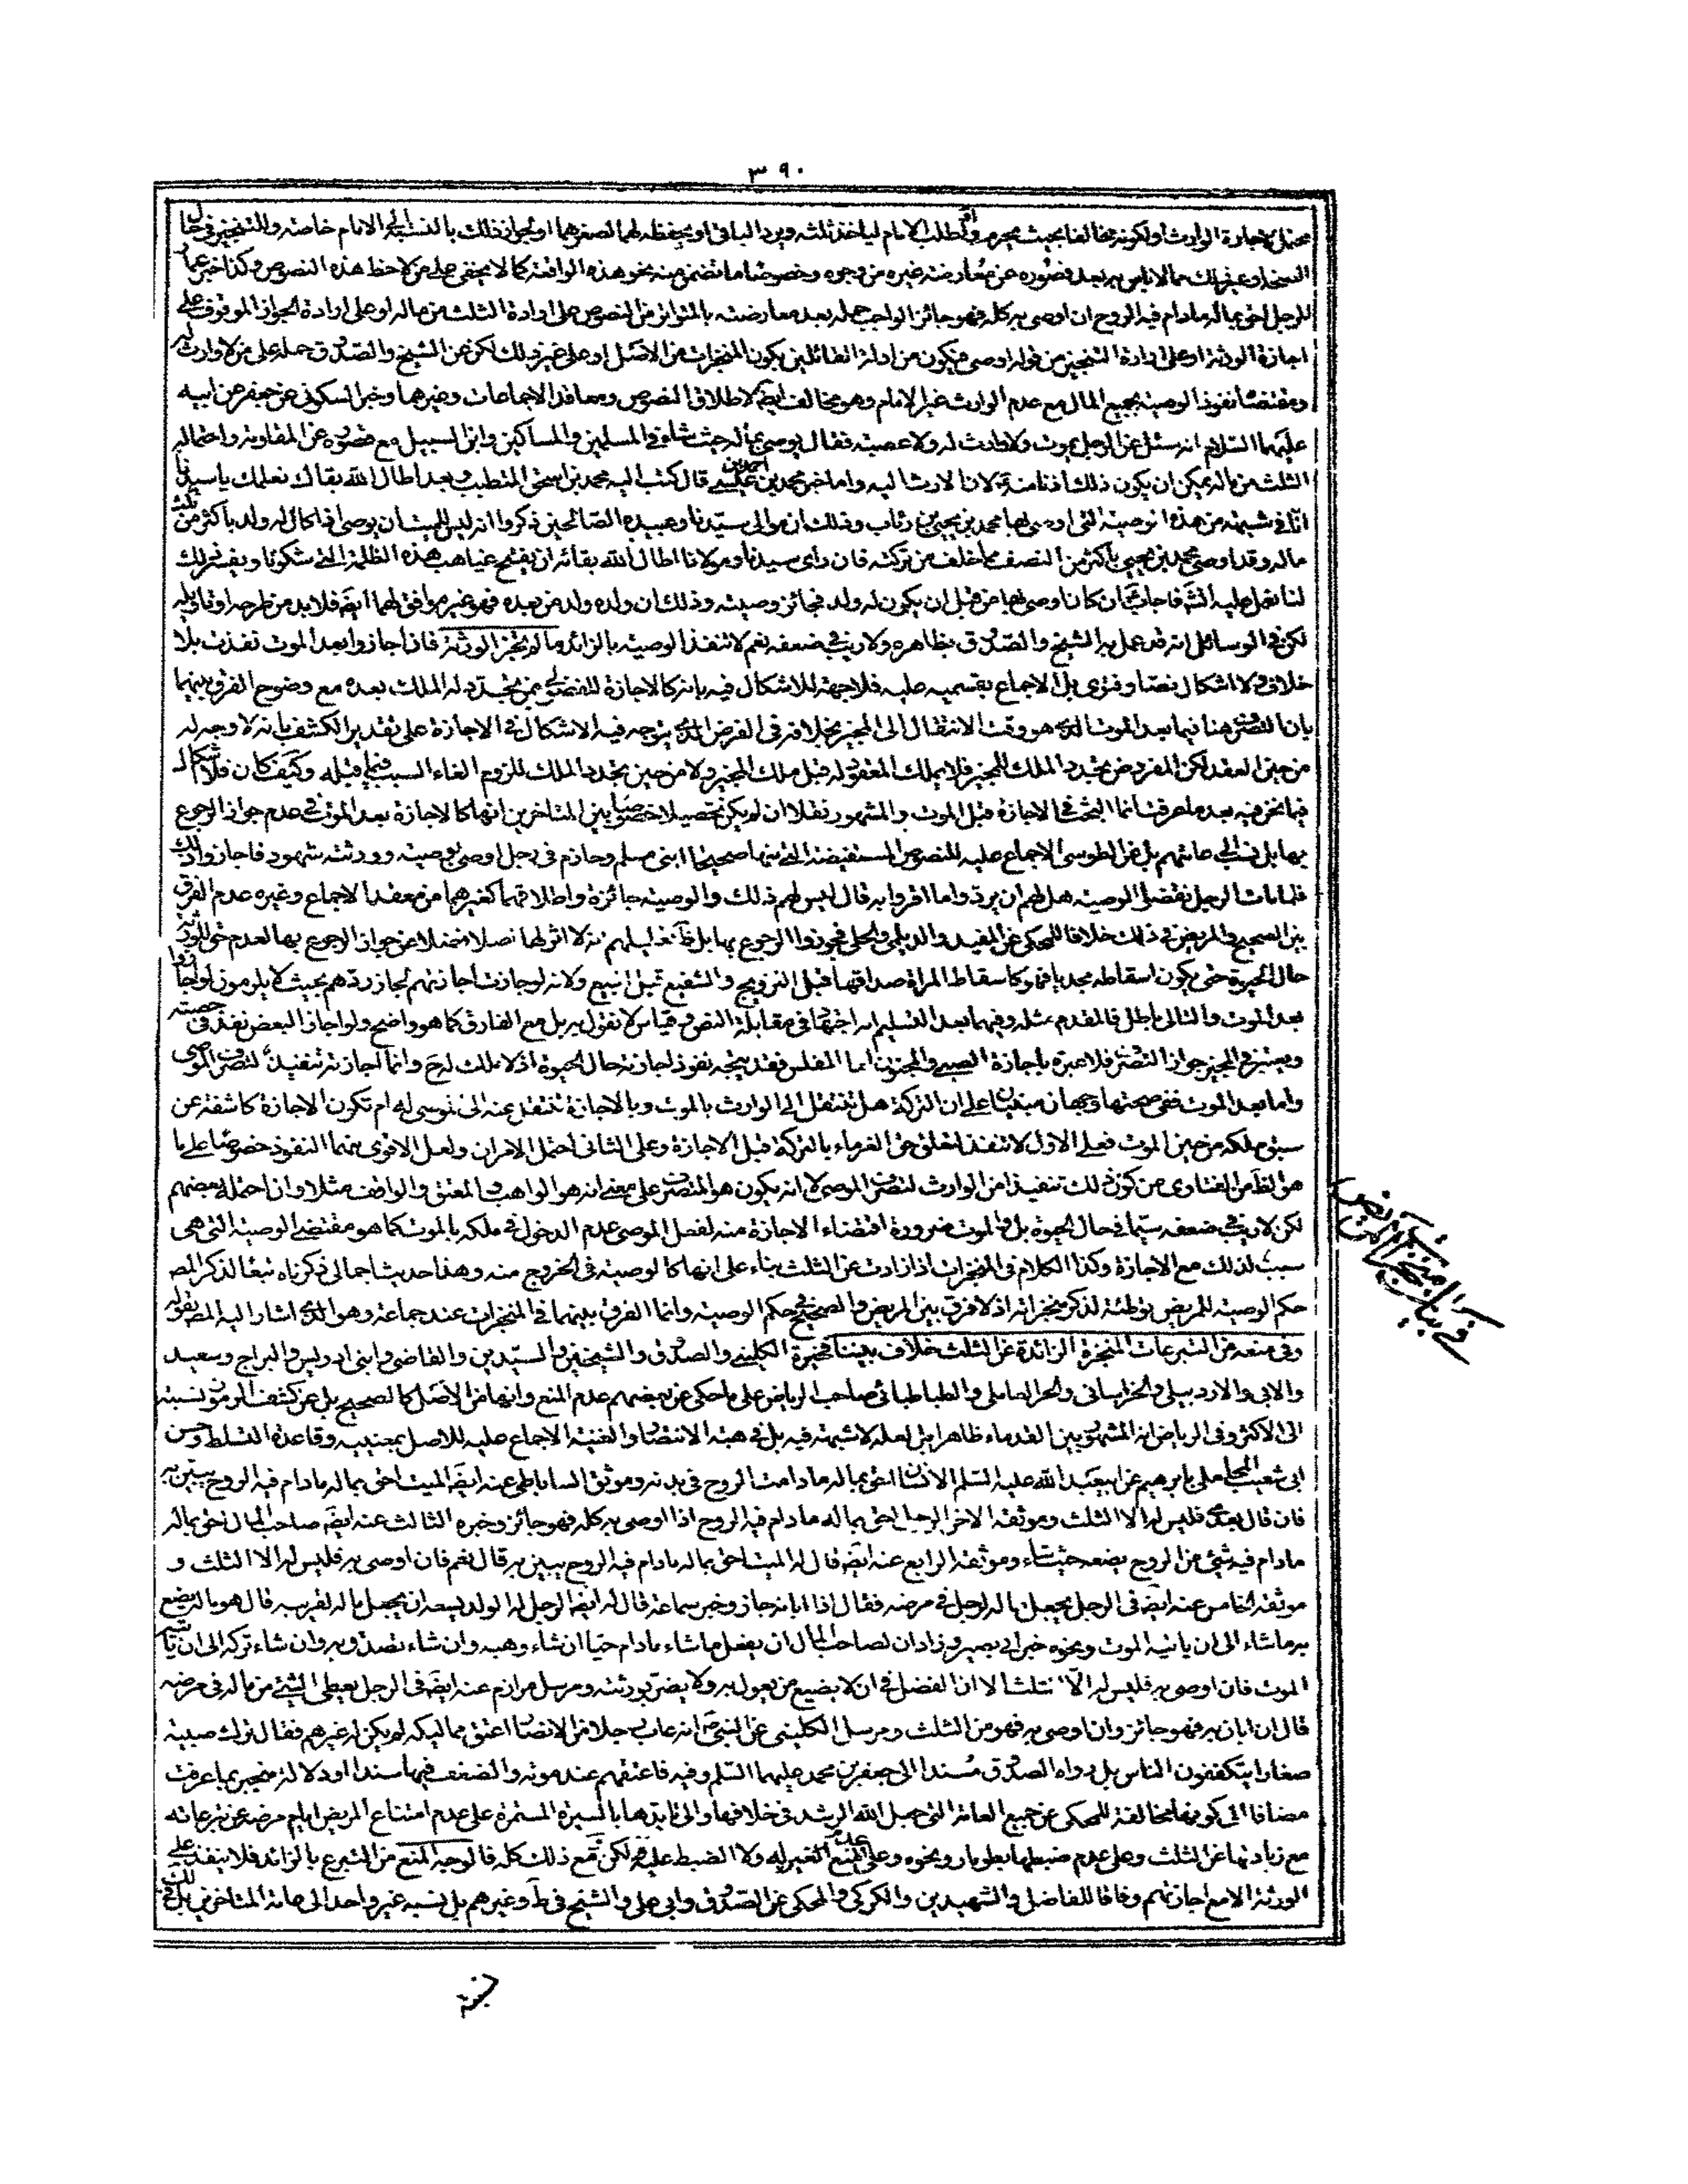 ٣٩٠
محتمل لاجازة الوارث او لكونه مخالفا بحيث يحرم او لطلب الامام لياخذ ثلثه ويرد الباقى او يحفظه لهما لصغرهما او لجواز ذلك بالنسبة الى الامام خاصة وللتنجيز فى حال
او غير ذلك مما لا باس به بعد قصوره عن معارضة غيره من وجوه وخصوصا ما تضمن منه نحو هذه الواقعة كما لا يخفى على من لاحظ هذه النصوص وكذا خبر عمار
الرجل احق بماله ما دام فيه الروح ان اوصى به كله فهو جائز الواجب حمله بعد معارضته بالمتواتر من النصوص على ارادة الثلث من ماله او على ارادة الجواز الموقوف على
اجازة الورثة او على ارادة التنجيز من قوله اوصى فيكون من ادلة القائلين بكون المنجزات من الاصل او على غير ذلك لكن عن الشيخ والصدوق حمله على من لا وارث له
ومقتضاه نفوذ الوصية بجميع المال مع عدم الوارث غير الامام وهو مخالف ايضا لاطلاق النصوص ومعاقد الاجماعات وغيرهما وخبر السكونى عن جعفر عن ابيه
عليهما السلام انه سئل عن الرجل يموت ولا وارث له ولا عصبة فقال يوصى بماله حيث شاء فى المسلمين والمساكين وابن السبيل مع قصوره عن المقاومة واحتماله
الثلث من ماله يمكن ان يكون ذلك اذنا منه لان الارث اليه واما خبر محمد بن احمد بن قال كتب اليه محمد بن اسحق المتطبب وبعد اطال الله بقاك نعلمك يا سيدنا
انا فى شبهة من هذه الوصية التى اوصى بها محمد بن يحيى بن رئاب وذلك ان موالى سيدنا وعبيده الصالحين ذكروا انه ليس للميت ان يوصى اذا كان له ولد باكثر من ثلث
ماله وقد اوصى محمد بن يحيى باكثر من النصف مما خلف من تركته فان راى سيدنا ومولانا اطال الله بقائه ان يفتح غياهب هذه الظلمة التى شكونا ويفسر ذلك
لنا نعمل عليه انش فاجاب ان كان اوصى بها من قبل ان يكون له ولد فجائز وصيته وذلك ان ولده ولد من بعده فهو غير موافق لهما ايضا فلا بد من طرحه او تاويله
لكن فى الوسائل انه قد عمل به الشيخ والصدوق بظاهره ولا ريب فى ضعفه نعم لا تنفذ الوصية بالزائد ما لم يجز الورثة فان اجازوا بعد الموت نفذت بلا
خلاف ولا اشكال نصا وفتوى بل الاجماع بقسميه عليه فلا جهة للاشكال فيه بانه كالاجازة للفضولى ممن يتجدد له الملك بعده مع وضوح الفرق بينهما
بان التصرف هنا فيما بعد الموت الذى هو وقت الانتقال الى المجيز بخلافه فى الفرض الذى يتوجه فيه الاشكال فى الاجازة على تقدير الكشف بانه لا وجه له
من حين العقد لكن المفروض تجدد الملك للمجيز فلا يملك المعقود له قبل ملك المجيز ولا من حين تجدد الملك للزوم الغاء السبب فيما قبله وكيف كان فلا اشكال
فيما نحن فيه بعد ما عرفت انما البحث فى الاجازة قبل الموت والمشهور نقلا ان لم يكن تحصيلا خصوصا بين المتاخرين انها كالاجازة بعد الموت فى عدم جواز الرجوع
بها بل نسب الى عامتهم بل عن الطوسى الاجماع عليه للنصوص المستفيضة التى منها صحيحا ابنى مسلم وحازم فى رجل اوصى بوصية وورثته شهود فاجازوا ذلك
فلما مات الرجل نقضوا الوصية هل لهم ان يردوا ما اقروا به قال ليس لهم ذلك والوصية جائزة واطلاقهما كغيرهما من معقد الاجماع وغيره عدم الفرق
بين الصحيح والمريض فى ذلك خلافا للمحكى عن المفيد والديلمى والحلى فجوزوا الرجوع بها بل ظاهر انه لا اثر لها اصلا فضلا عن جواز الرجوع بها لعدم حق للورثة
حال الحيوة حتى يكون اسقاطه مجديا فهو كاسقاط المراة صداقها قبل التزويج والشفيع قبل البيع ولانه لو جازت اجازتهم لجاز ردهم بحيث لا يلزمون لو اجازوا
بعد الموت والتالى باطل فالمقدم مثله وفيهما بعد التسليم انه اجتهاد فى مقابلة النص وقياس لا نقول به بل مع الفارق كما هو واضح ولو اجاز البعض نفذ فى حصته
ويعتبر فى المجيز جواز التصرف فلا عبرة باجازة الصبى والمجنون اما المفلس فقد يتجه نفوذ اجازته حال الحيوة اذ لا ملك له ح وانما اجازته تنفيذ لتصرف الموصى
واما بعد الموت ففى صحتها وجهان مبنيان على ان التركة هل تنتقل الى الوارث بالموت وبالاجازة تنتقل عنه الى الموصى له ام تكون الاجازة كاشفة عن
سبق ملكه من حين الموت فعلى الاول لا تنفذ لتعلق حق الغرماء بالتركة قبل الاجازة وعلى الثانى احتمل الامران ولعل الاقوى منهما النفوذ خصوصا على ما
هو الظ من الفتاوى من كون ذلك تنفيذا من الوارث لتصرف الموصى لا انه يكون هو المتصرف على معنى انه هو الواهب والمعتق والواقف مثلا وان احتمله بعضهم
لكن لا ريب فى ضعفه سيما فى حال الحيوة بل والموت ضرورة اقتضاء الاجازة منه لفعل الموصى عدم الدخول فى ملكه بالموت كما هو مقتضى الوصية التى هى
سبب لذلك مع الاجازة وكذا الكلام فى المنجزات اذا زادت عن الثلث بناء على انها كالوصية فى الخروج منه وهذا حديث اجمالى ذكرناه تبعا لذكر المص
حكم الوصية للمريض توطئة لذكر منجزاته اذ لا فرق بين المريض والصحيح فى حكم الوصية وانما الفرق بينهما فى المنجزات عند جماعة وهو الذى اشار اليه المص بقوله
وفى منعه من التبرعات المنجزة الزائدة عن الثلث خلاف بيننا فخيرة الكلينى والصدوق والشيخين والسيدين والقاضى وابنى ادريس والبراج وسعيد
والابى والاردبيلى والخراسانى والحر العاملى والطباطبائى صاحب الرياض على ما حكى عن بعضهم عدم المنع وانها من الاصل كالصحيح بل عن كشف الرموز نسبته
الى الاكثر وفى الرياض انه المشهور بين القدماء ظاهرا بل لعله لا شبهة فيه بل فى هبة الانتصار والغنية الاجماع عليه للاصل بمعنييه وقاعدة التسلط وحسن
ابى شعيب المحاملى بابرهيم عن ابيعبد الله عليه السلم الانسان احق بماله ما دامت الروح فى بدنه وموثق الساباطى عنه ايضا الميت احق بماله ما دام فيه الروح يبين به
فان قال بعدى فليس له الا الثلث وموثقه الاخر الرجل احق بماله ما دام فيه الروح اذا اوصى به كله فهو جائز وخبره الثالث عنه ايضا صاحب المال احق بماله
ما دام فيه شئ من الروح يضعه حيث شاء وموثقه الرابع عنه ايضا قال له الميت احق بماله ما دام فيه الروح يبين به قال نعم فان اوصى به فليس له الا الثلث و
موثقه الخامس عنه ايضا فى الرجل يجعل ماله لرجل فى مرضه فقال اذا ابانه جاز وخبر سماعة قال له ايضا الرجل له الولد يسعه ان يجعل ماله لقرابته قال هو ماله يصنع
به ما شاء الى ان ياتيه الموت ونحوه خبر ابى بصير وزاد ان لصاحب المال ان يفعل ما شاء ما دام حيا ان شاء وهبه وان شاء تصدق به وان شاء تركه الى ان ياتيه
الموت فان اوصى به فليس له الا الثلث الا ان الفضل فى ان لا يضيع من يعول به ولا يضر بورثته ومرسل مرازم عنه ايضا فى الرجل يعطى الشئ من ماله فى مرضه
قال ان ابان به فهو جائز وان اوصى به فهو من الثلث ومرسل الكلينى عن النبى ص انه عاب رجلا من الانصار اعتق مماليكه لم يكن له غيرهم فقال ترك صبية
صغارا يتكففون الناس بل رواه الصدوق مسندا الى جعفر بن محمد عليهما السلم وفيه فاعتقهم عند موته والضعف فيها سندا او دلالة منجبر بما عرفت
مضافا الى كونها مخالفة للمحكى عن جميع العامة التى جعل الله الرشد فى خلافها والى تايدها بالسيرة المستمرة على عدم امتناع المريض ايام مرضه عن تبرعاته
مع زيادتها عن الثلث وعلى عدم ضبطها بطومار ونحوه وعلى عدم المنع الغير له ولا الضبط عليه لكن مع ذلك كله فالوجه المنع من التبرع بالزائد فلا ينفذ على
الورثة الا مع اجازتهم وفاقا للفاضل والشهيدين والكركى والمحكى عن الصدوق وابى على والشيخ فى ط وغيرهم بل نسبه غير واحد الى عامة المتاخرين بل فى لك
فى بيان منجزات المريض
نسبته